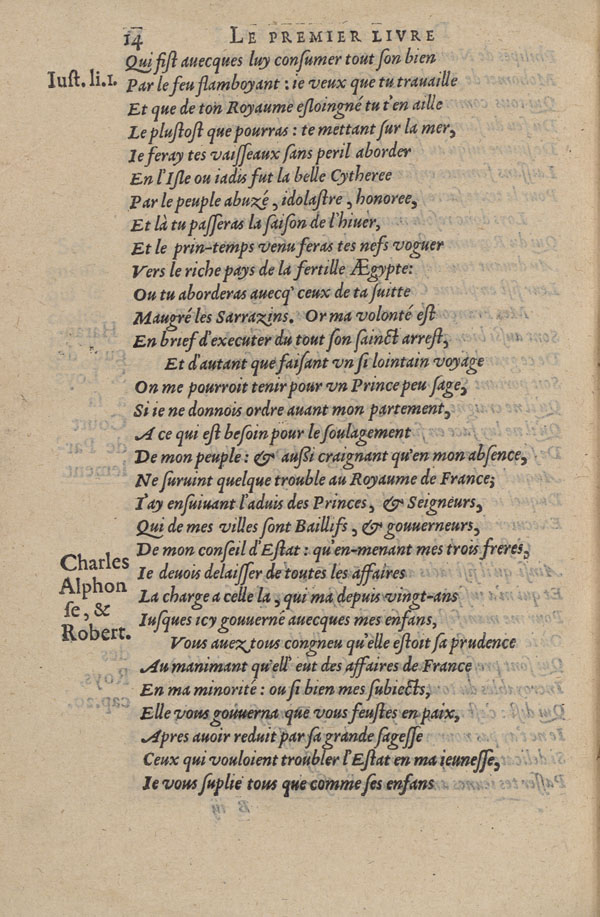 14 LE PREMIER LIVRE
Qui fist auecques luy consumer tout son bien
Iust. li.1.
Par le feu flamboyant : ie veux que tu trauaille
Et que de ton Royaume esloingné tu t'en aille
Le plustost que pourras : te mettant sur la mer,
Ie feray tes vaisseaux sans peril aborder
En l'Isle ou iadis fut la belle Cytheree
Par le peuple abuzé, idolastre, honoree,
Et là tu passeras la saison de l'hiuer,
Et le prin-temps venu feras tes nefs voguer
Vers le riche pays de la fertille Ægypte:
Ou tu aborderas auecq' ceux de ta suitte
Maugré les Sarrazins. Or ma volonté est
En brief d'executer du tout son sainct arrest,
Et d'autant que faisant vn si lointain voyage
On me pourroit tenir pour vn Prince peu sage,
Si ie ne donnois ordre auant mon partement,
A ce qui est besoin pour le soulagement
De mon peuple : & aussi craignant qu'en mon absence,
Ne suruint quelque trouble au Royaume de France;
I'ay ensuiuant l'aduis des Princes, & Seigneurs,
Qui de mes villes sont Baillifs, & gouuerneurs,
De mon conseil d'Estat : qu'en-menant mes trois freres,
Charles
Alphon
se, &
Robert.
Ie deuois delaisser de toutes les affaires
La charge a celle la, qui m'a depuis vingt-ans
Iusques icy gouuerné auecques mes enfans,
Vous auez tous congneu qu'elle estoit sa prudence
Au manimant qu'ell' eut des affaires de France
En ma minorité : ou si bien mes subiects,
Elle vous gouuerna que vous feustes en paix,
Apres auoir reduit par sa grande sagesse
Ceux qui vouloient troubler l'Estat en ma ieunesse,
Ie vous suplie tous que comme ses enfans